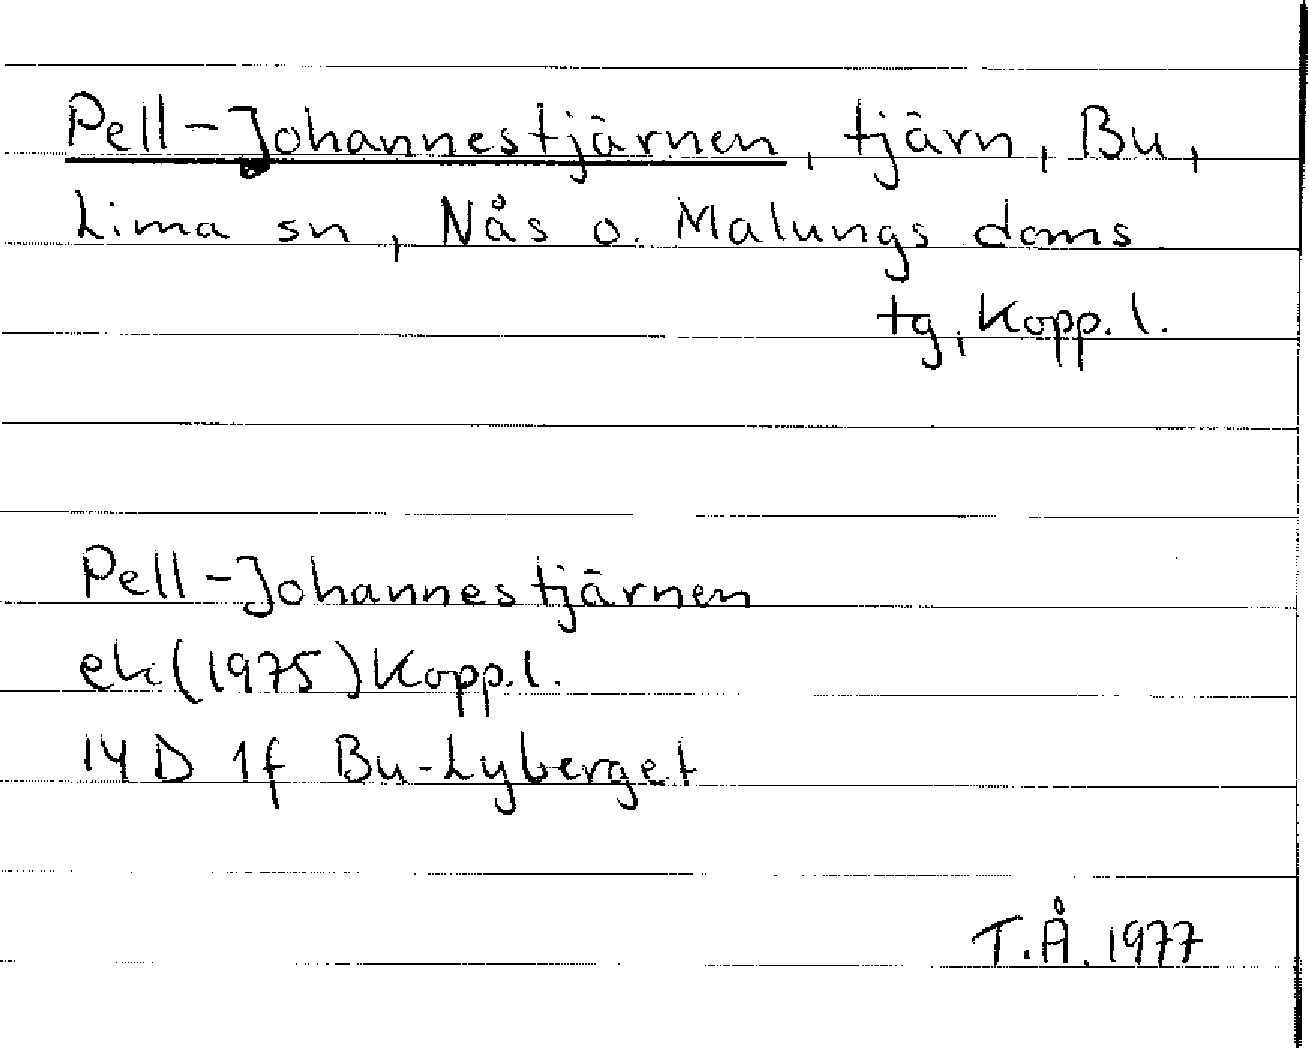 Pell-Johannestjärnen, tjärn, Bu,
Lima sn, Nås o. Malungs doms
tg, Kopp. l.
Pell-Johannestjärnen
ek (1975) Kopp. l.
14 D 1f Bu-Lyberget
T.Å. 1977